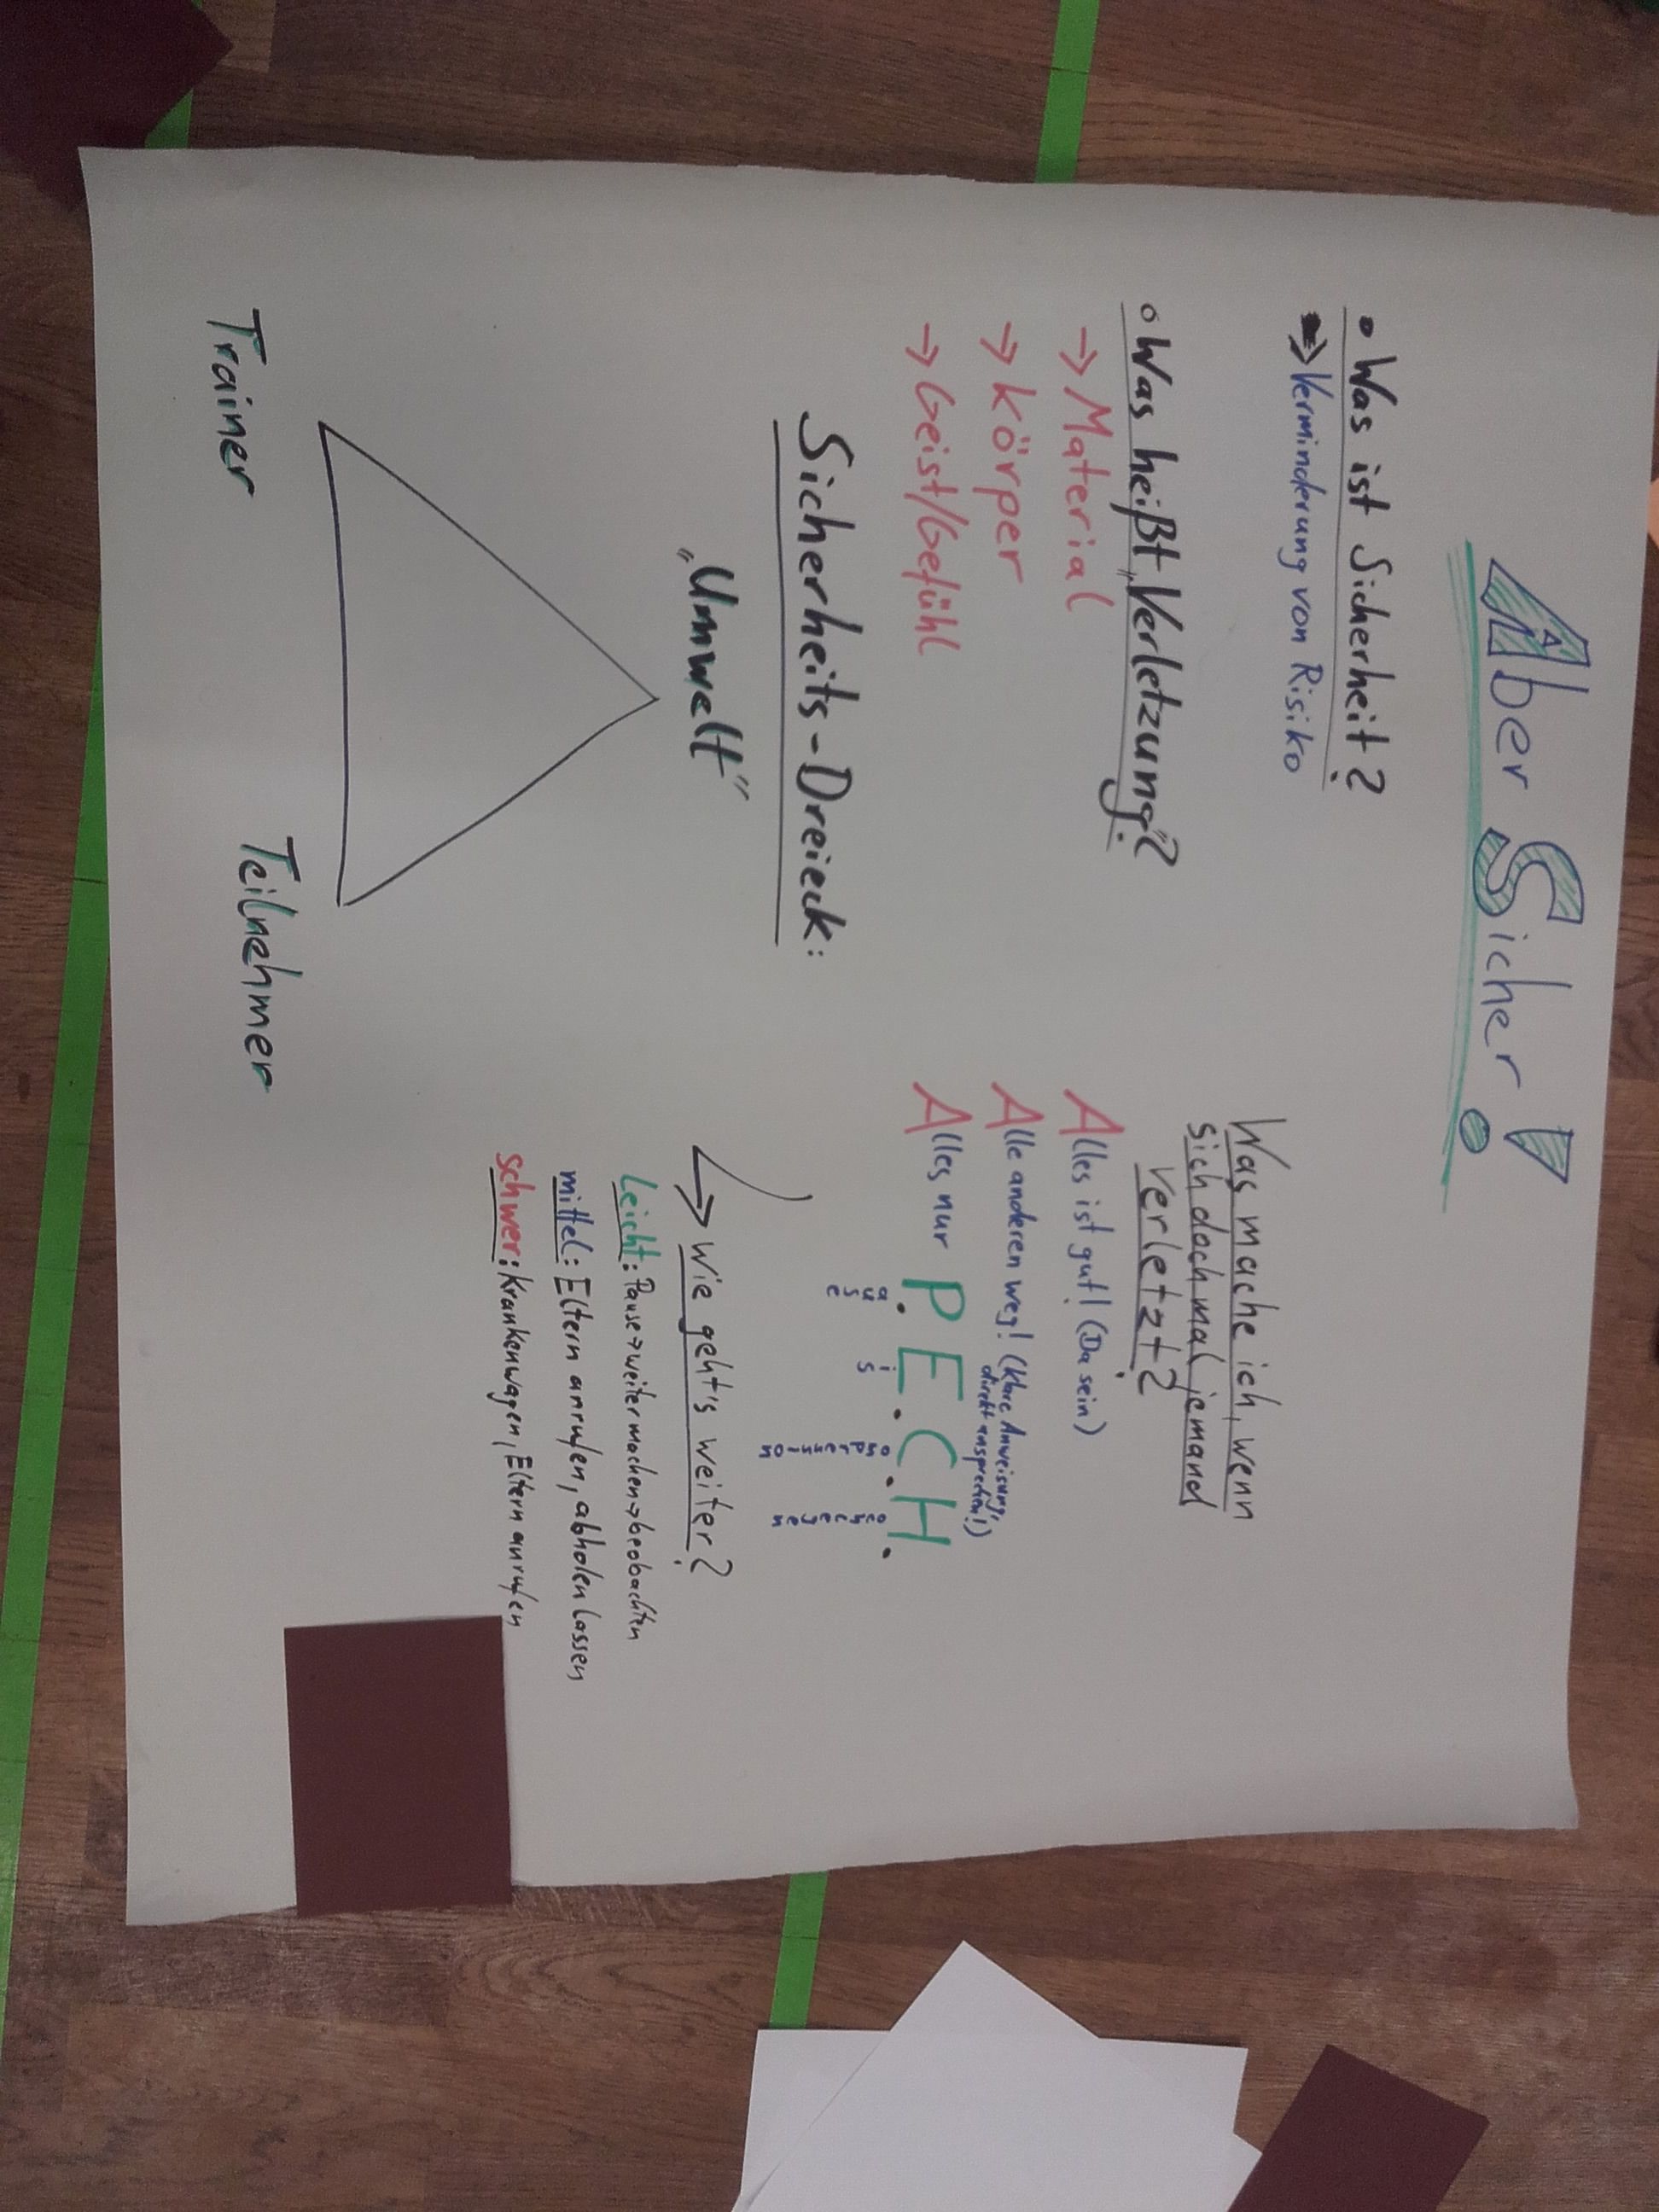 Aber Sicher!
• Was ist Sicherheit?
→ Verminderung von Risiko
○ Was heißt „Verletzung"?
→ Material
→ Körper
→ Geist/Gefühl
Sicherheits-Dreieck:
„Umwelt"
Trainer
Teilnehmer
Was mache ich, wenn
sich doch mal jemand
verletzt?
Alles ist gut! (Da sein)
Alle anderen weg! (Klare Anweisung,
direkt ansprechen!)
Alles nur P.E.C.H.
ause
is
ompression
ochlegen
→ Wie geht's weiter?
Leicht: Pause → weitermachen → beobachten
mittel: Eltern anrufen, abholen lassen
schwer: Krankenwagen, Eltern anrufen